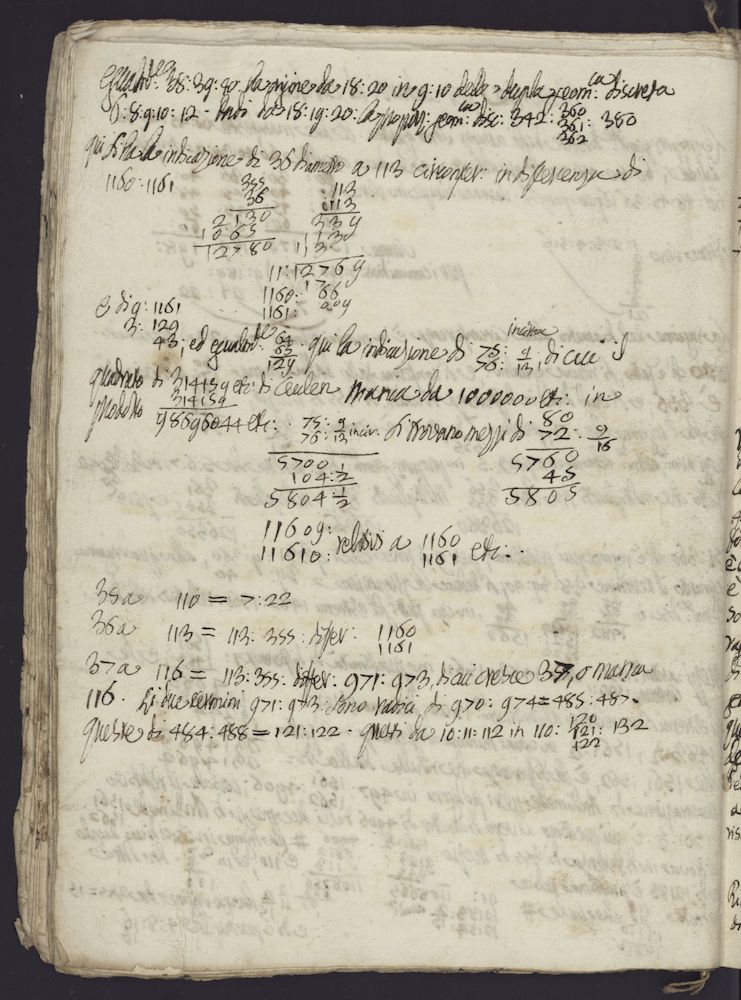 38: 39: 40, da 18: 20 in 9: 10 delle dupla geom: ca discreta
8: 9: 10: 12 - Indi da 18: 19: 20: geom: ca disc: 342: 360 361 362 : 380
qui si ha la indicazione di 36 diametro a 113 circonfer: in differenza di
1160: 1161
355 113
36 113
2130 339
1065 1130
12780 113
11: 12769
1160: 66
1161:
e di 9: 1161
3: 129
43, ed 64 65 129 qui la indicazione di 75: 76: 9 13, incirca di cui il
quadrato di 314159 etc: di Ceulen manca da 1000000 etc: in
prodotto 314159
98696044 etc: 75: 9 76: 13 incir. si trovano mezzi di 80 72 9 16
5700 1 5760
104: 2 45
5804 1/2 5805
11609: 11610: relativi a 1160 1161 etc:
35 a 110 = 7: 22
36 a 113 = 113: 355: differ: 1160 1161
37 a 116 = 113: 355: differ: 971: 973, di cui cresce 37, o manca
116. Li due termini 971: 973 sono di 970: 974 = 485: 487.
queste di 484: 488 = 121: 122 - questi da 10: 11: 112 in 110: 120 121 122 : 132